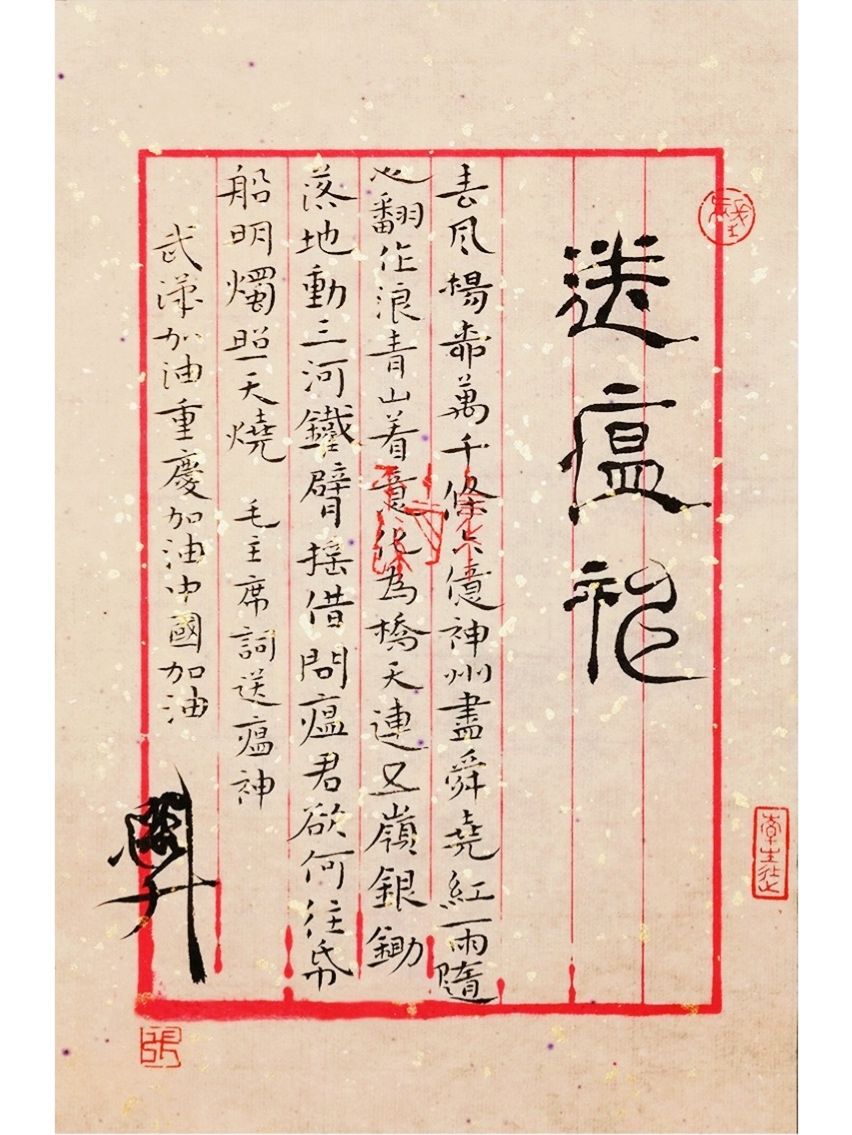 送瘟神
春风楊柳萬千條六億神州盡舜堯紅雨隨
心翻作浪青山着意化為橋天連五嶺銀鋤
落地動三河鐵臂搖借問瘟君欲何往帋
船明燭照天燒 毛主席詞送瘟神
武漢加油重慶加油中國加油